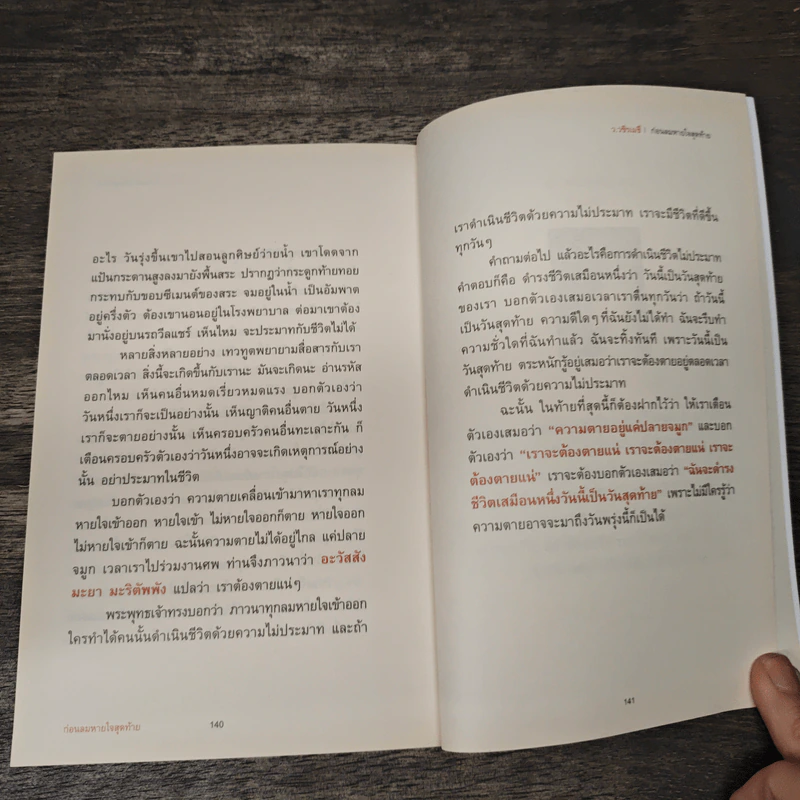 อะไร วันรุ่งขึ้นเขาไปสอนลูกศิษย์ว่ายน้ำ เขาโดดจาก
แป้นกระดานสูงลงมายังพื้นสระ ปรากฏว่ากระดูกท้ายทอย
กระทบกับขอบซีเมนต์ของสระ จมอยู่ในน้ำ เป็นอัมพาต
อยู่ครึ่งตัว ต้องเขานอนอยู่ในโรงพยาบาล ต่อมาเขาต้อง
มานั่งอยู่บนรถวีลแชร์ เห็นไหม จะประมาทกับชีวิตไม่ได้
หลายสิ่งหลายอย่าง เทวทูตพยายามสื่อสารกับเรา
ตลอดเวลา สิ่งนี้จะเกิดขึ้นกับเรานะ มันจะเกิดนะ อ่านรหัส
ออกไหม เห็นคนอื่นหมดเรี่ยวหมดแรง บอกตัวเองว่า
วันหนึ่งเราก็จะเป็นอย่างนั้น เห็นญาติคนอื่นตาย วันหนึ่ง
เราก็จะตายอย่างนั้น เห็นครอบครัวคนอื่นทะเลาะกัน ก็
เตือนครอบครัวตัวเองว่าวันหนึ่งอาจจะเกิดเหตุการณ์อย่าง
นั้น อย่าประมาทในชีวิต
บอกตัวเองว่า ความตายเคลื่อนเข้ามาหาเราทุกลม
หายใจเข้าออก หายใจเข้า ไม่หายใจออกก็ตาย หายใจออก
ไม่หายใจเข้าก็ตาย ฉะนั้นความตายไม่ได้อยู่ไกล แค่ปลาย
จมูก เวลาเราไปร่วมงานศพ ท่านจึงภาวนาว่า อะวัสสัง
มะยา มะริตัพพัง แปลว่า เราต้องตายแน่ๆ
พระพุทธเจ้าทรงบอกว่า ภาวนาทุกลมหายใจเข้าออก
ใครทำได้คนนั้นดำเนินชีวิตด้วยความไม่ประมาท และถ้า
ก่อนลมหายใจสุดท้าย 140
ว.วชิรเมธี | ก่อนลมหายใจสุดท้าย
เราดำเนินชีวิตด้วยความไม่ประมาท เราจะมีชีวิตที่ดีขึ้น
ทุกวันๆ
คำถามต่อไป แล้วอะไรคือการดำเนินชีวิตไม่ประมาท
คำตอบก็คือ ดำรงชีวิตเสมือนหนึ่งว่า วันนี้เป็นวันสุดท้าย
ของเรา บอกตัวเองเสมอเวลาเราตื่นทุกวันว่า ถ้าวันนี้
เป็นวันสุดท้าย ความดีใดๆที่ฉันยังไม่ได้ทำ ฉันจะรีบทำ
ความชั่วใดที่ฉันทำแล้ว ฉันจะทิ้งทันที เพราะวันนี้เป็น
วันสุดท้าย ตระหนักรู้อยู่เสมอว่าเราจะต้องตายอยู่ตลอดเวลา
ดำเนินชีวิตด้วยความไม่ประมาท
ฉะนั้น ในท้ายที่สุดนี้ก็ต้องฝากไว้ว่า ให้เราเตือน
ตัวเองเสมอว่า “ความตายอยู่แค่ปลายจมูก” และบอก
ตัวเองว่า “เราจะต้องตายแน่ เราจะต้องตายแน่ เราจะ
ต้องตายแน่” เราจะต้องบอกตัวเองเสมอว่า “ฉันจะดำรง
ชีวิตเสมือนหนึ่งวันนี้เป็นวันสุดท้าย” เพราะไม่มีใครรู้ว่า
ความตายอาจจะมาถึงวันพรุ่งนี้ก็เป็นได้
141